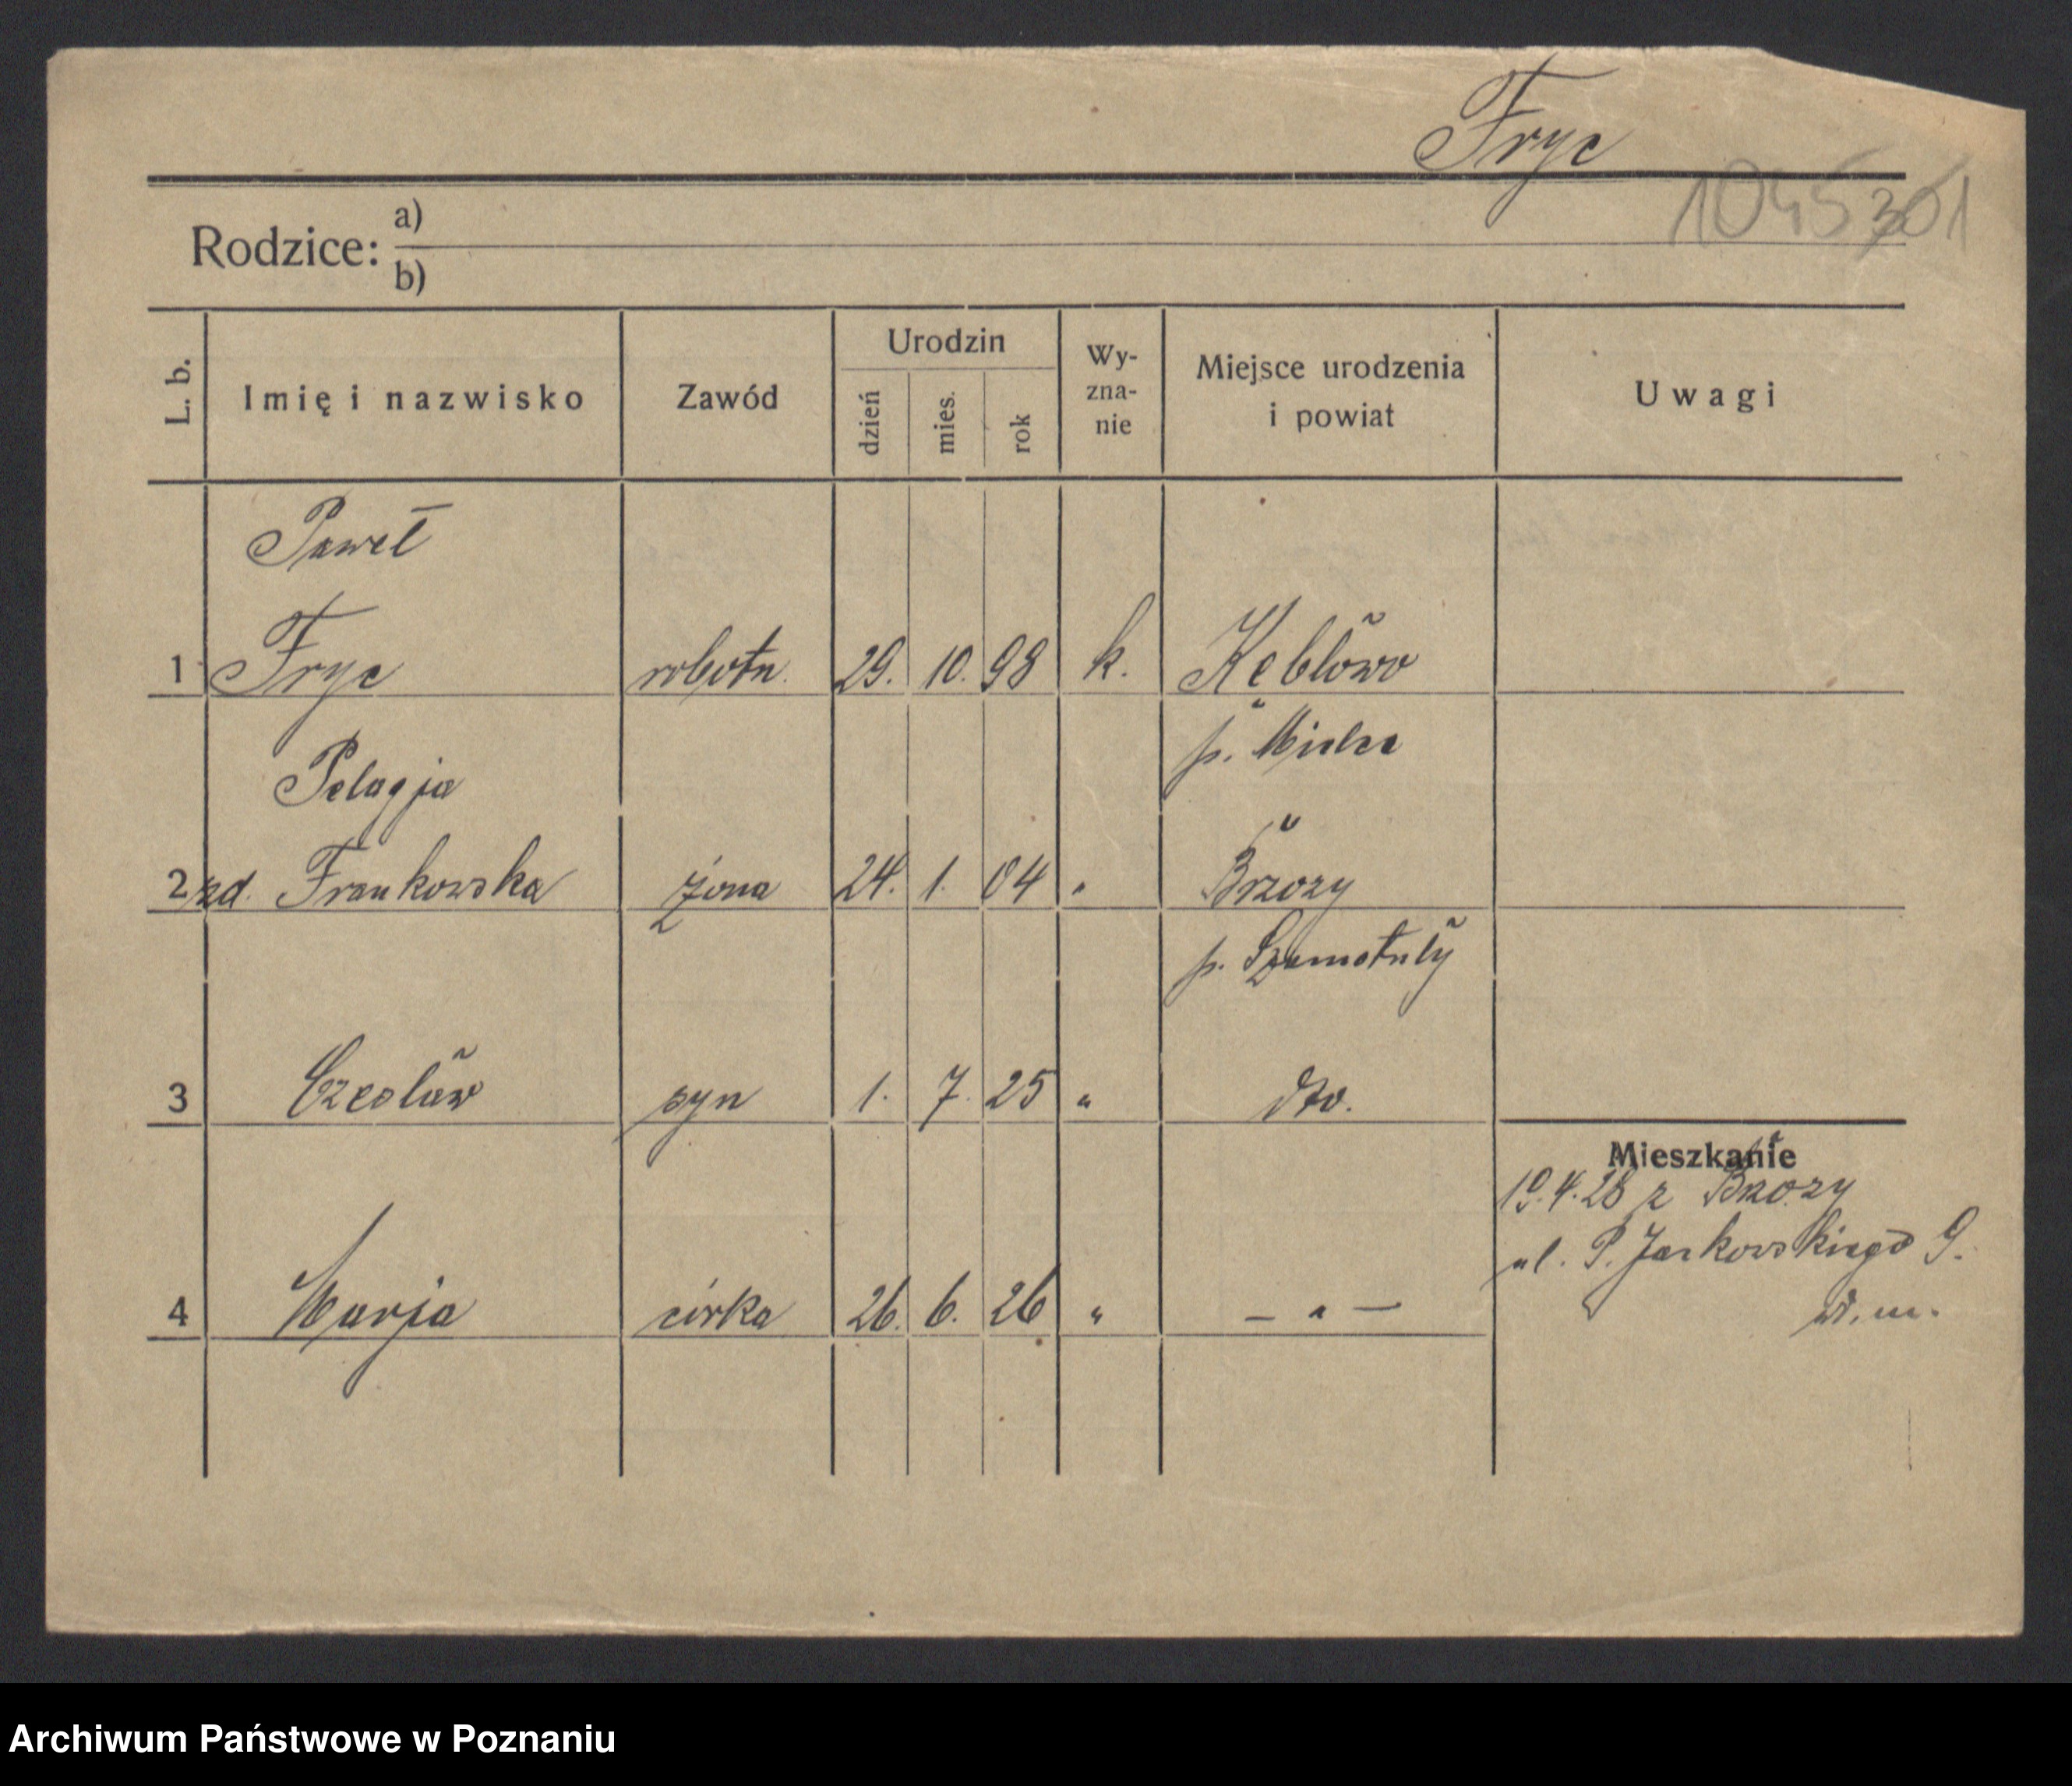 Fryc
1045301
Rodzice: a)
b)
L. b. Imię i nazwisko Zawód Urodzin dzień mies. rok Wy-zna-nie Miejsce urodzenia i powiat Uwagi
Paweł
1 Fryc robotn. 29. 10. 98 k. Kębłowo
p. Mielec
Pelagja
2 zd. Frankowska żona 24. 1. 04 " Brzozy
p. Szamotuły
3 Czesław syn 1. 7. 25 " dto.
4 Marja córka 26. 6. 26 " – " –
Mieszkanie
10.4.28 z Brzozy
ul. P. Jarkowskiego 9.
w. m.
Archiwum Państwowe w Poznaniu